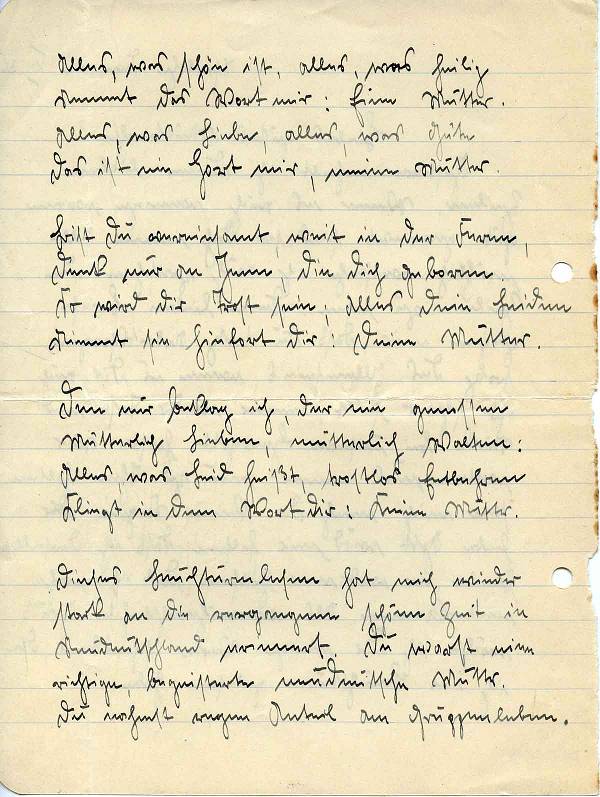 Alles, was schön ist, alles, was heilig
Nennt das Wort mir: Eine Mutter.
Alles, was Liebe, alles, was Güte
Das ist ein Hort mir, meine Mutter.
Bist du vereinsamt, weit in der Ferne,
Denk nur an Jene, die dich geboren.
So wird dir Trost sein; alles dein Leiden
Nimmt sie hinfort dir: Deine Mutter.
Den nur beklag ich, der nie genossen
Mütterlich Lieben, mütterlich Walten:
Alles, was Leid heißt, trostlos Entbehren
Klingt in dem Wort dir: Keine Mutter.
Dieses Leuchturmlesen hat mich wieder
stark an die vergangene schöne Zeit in
Neudeutschland erinnert. Du warst eine
richtige, begeisterte neudeutsche Mutter.
Du nahmst regen Anteil am Gruppenleben.